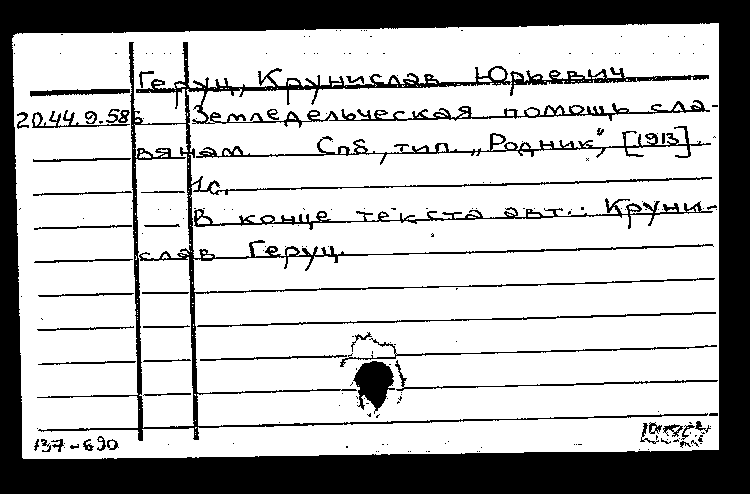 Геруц, Крунислав Юрьевич
20.44.9.586 Земледельческая помощь сла-
вянам. Спб., тип. „Родник", [1913].
1с.
В конце текста авт.: Круни-
слав Геруц.
137-690